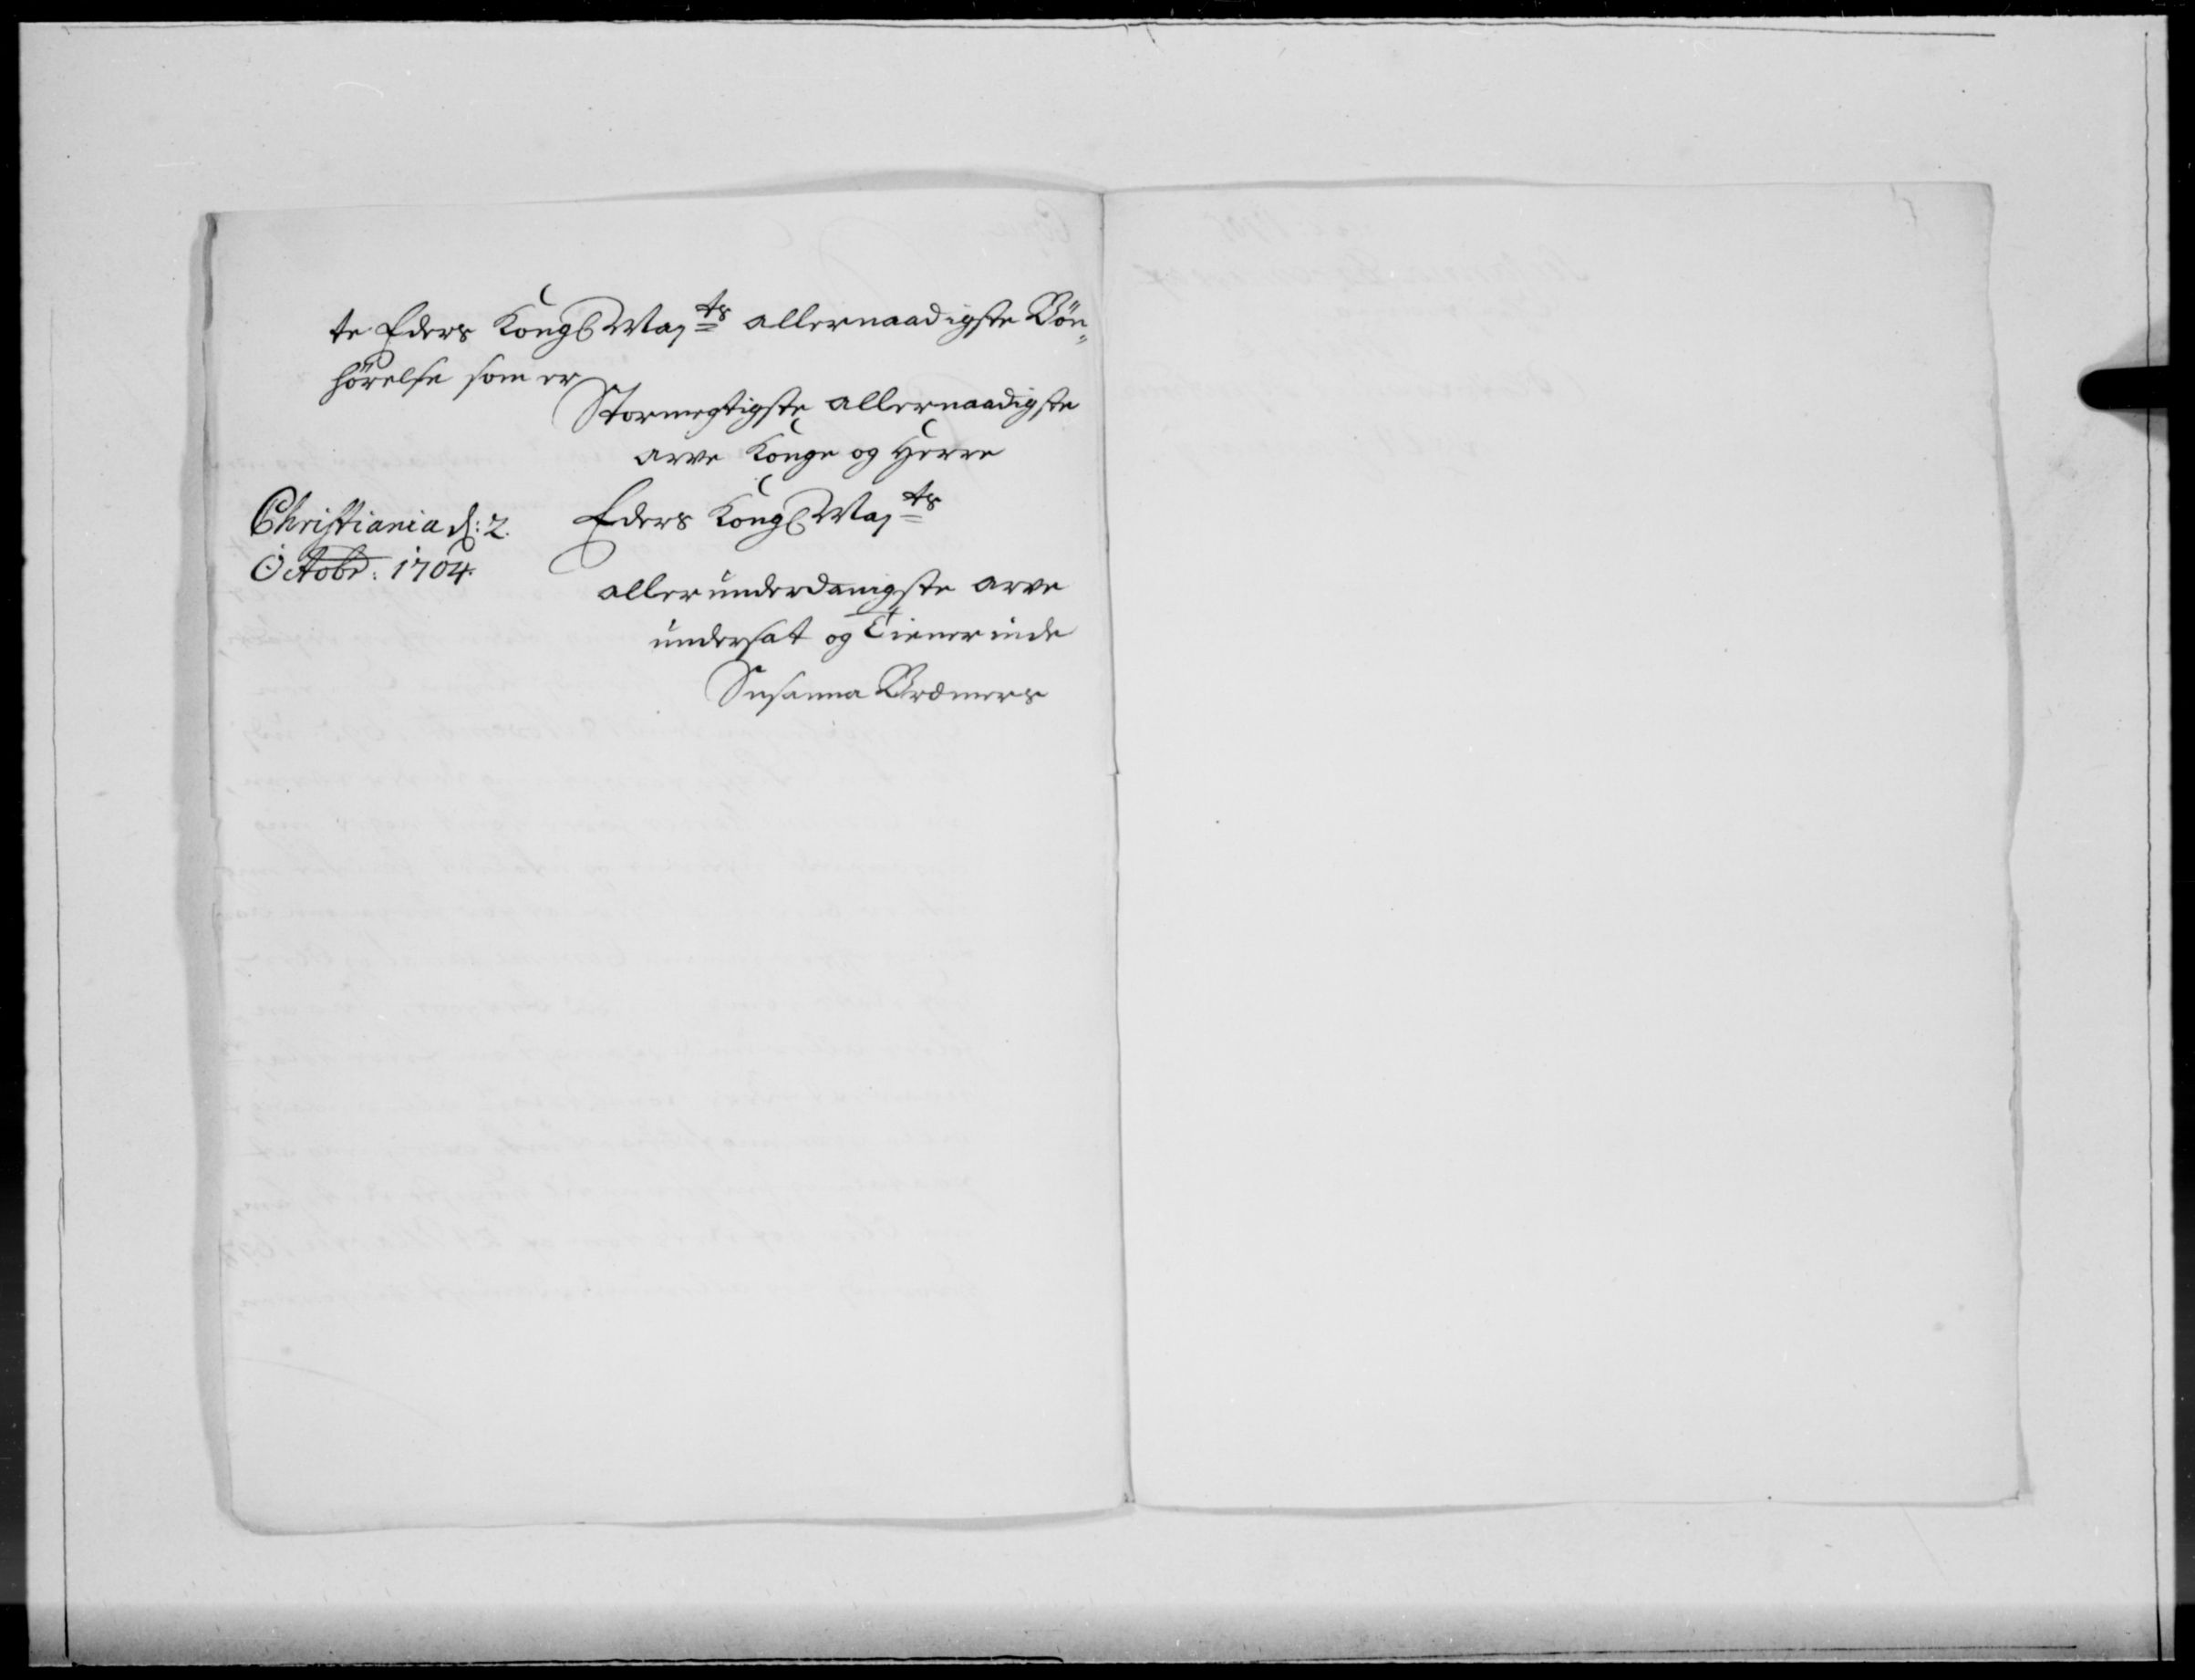 te Eders Kongl Maj.ts allernaadigste Bön-
hörelse som er
Stormegtigste allernaadigste
arve Konge og Herre
Eders Kongl Maj.ts
Christiania d: 2.
Octobr: 1704.
allerunderdanigste arve
undersat og Tienerinde
Susanna Bremers